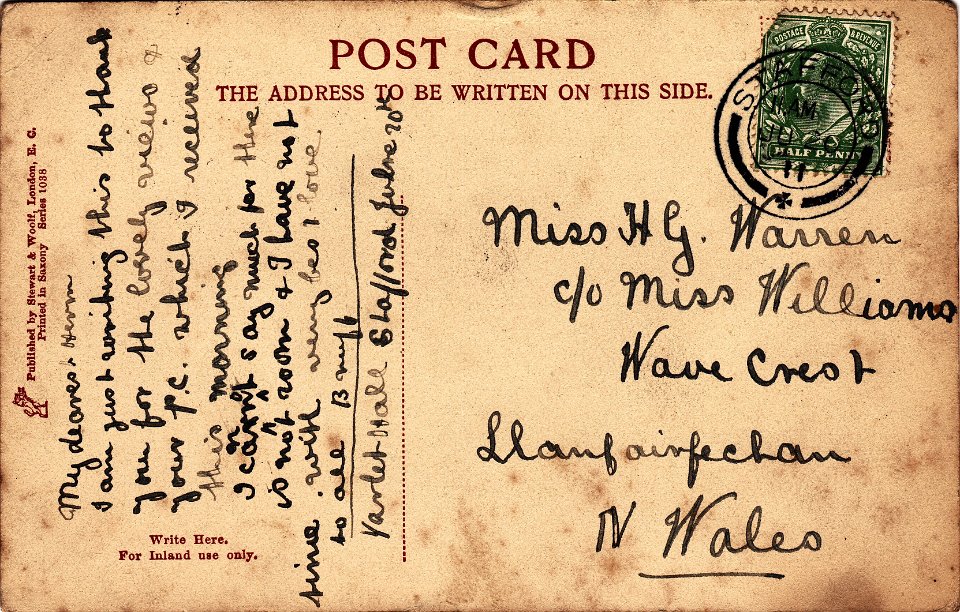 POST CARD
THE ADDRESS TO BE WRITTEN ON THIS SIDE.
POSTAGE & REVENUE
HALF PENNY
STAFFORD
11 AM
20
11
Published by Stewart & Woolf, London, E. C.
Printed in Saxony Series 1038
My dearest
I am just writing this to thank
you for the lovely views &
your P.C. which I received
this morning
I can't say much for there
is not room & I have not
time. with very best love
to all B
Hall Stafford June 20th
Write Here.
For Inland use only.
Miss H G. Warren
c/o Miss Williams
Wave Crest
Llanfairfechan
N Wales